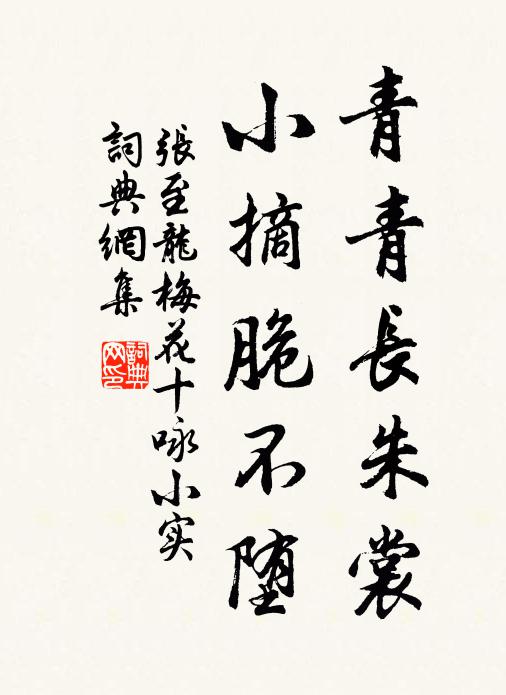 青青長朱裳
小摘脆不堕
張至龍梅花十咏小实
詞典網集
詞典网印